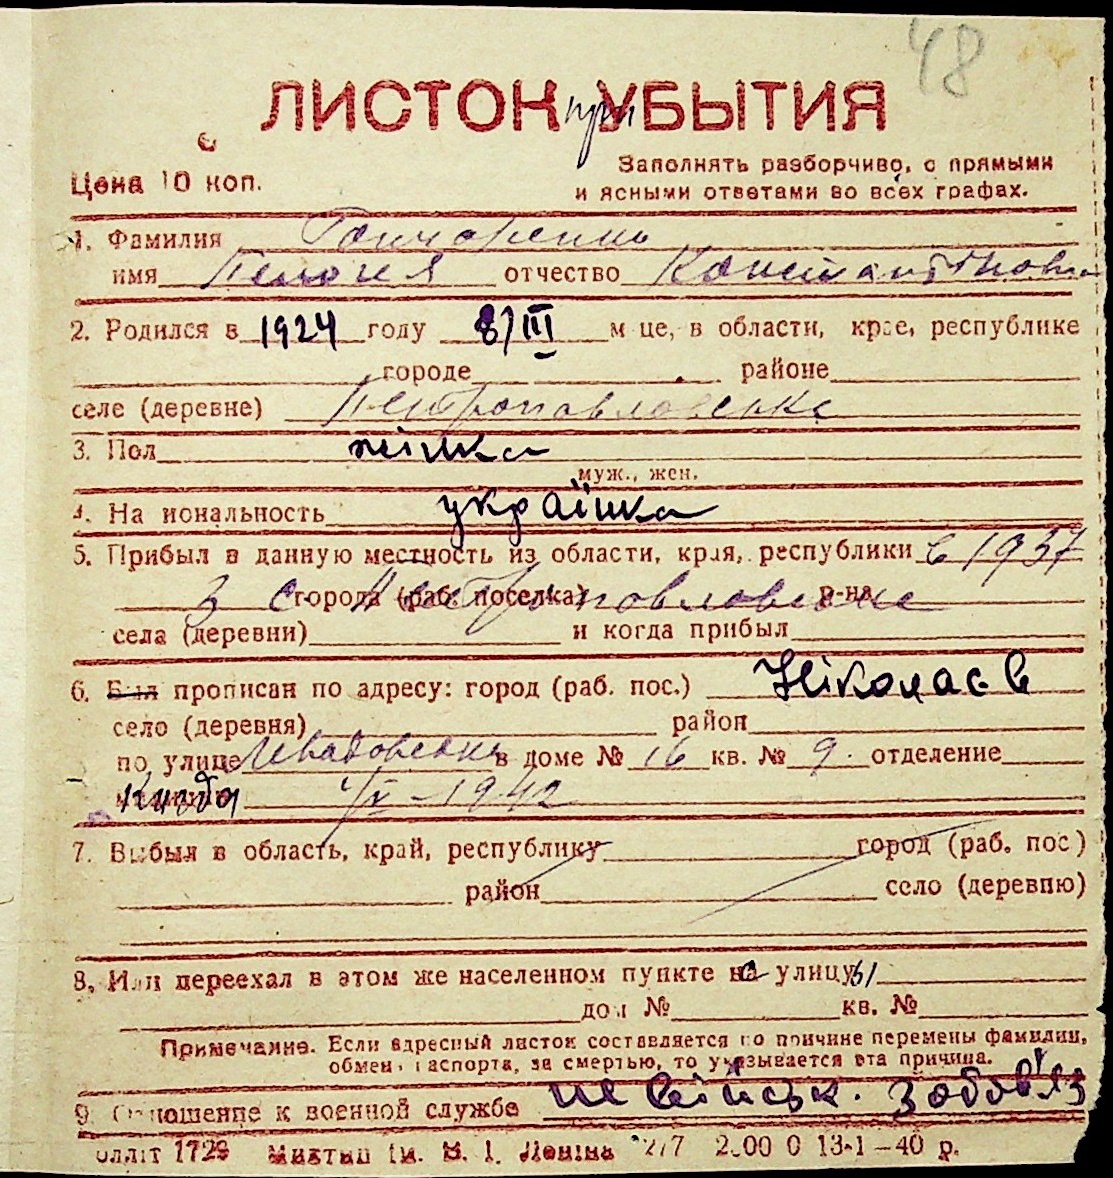 48
ЛИСТОК при УБЫТИЯ
Цена 10 коп.
Заполнять разборчиво, с прямыми
и ясными ответами во всех графах.
1. Фамилия Гончаренко
имя Пелагея отчество Константиновна
2. Родился в 1924 году 8/III м-це, в области, крае, республике
городе районе
селе (деревне) Петропавловське
3. Пол жінка
муж., жен.
4. Национальность українка
5. Прибыл в данную местность из области, края, республики в 1937
З с. Петропавловське города (раб. поселка) р-на
села (деревни) и когда прибыл
6. Был прописан по адресу: город (раб. пос.) Ніколаєв
село (деревня) район
по улице в доме № 16 кв. № 9. отделение
Когда 1942
7. Выбыл в область, край, республику город (раб. пос.)
район село (деревню)
8. Или переехал в этом же населенном пункте на улицу
дом № кв. №
Примечание. Если адресный листок составляется по причине перемены фамилии,
обмена паспорта, за смертью, то указывается эта причина.
9. Отношение к военной службе не військ. зобов'яз
1729 ім. В. І. Леніна 13-1-40 р.